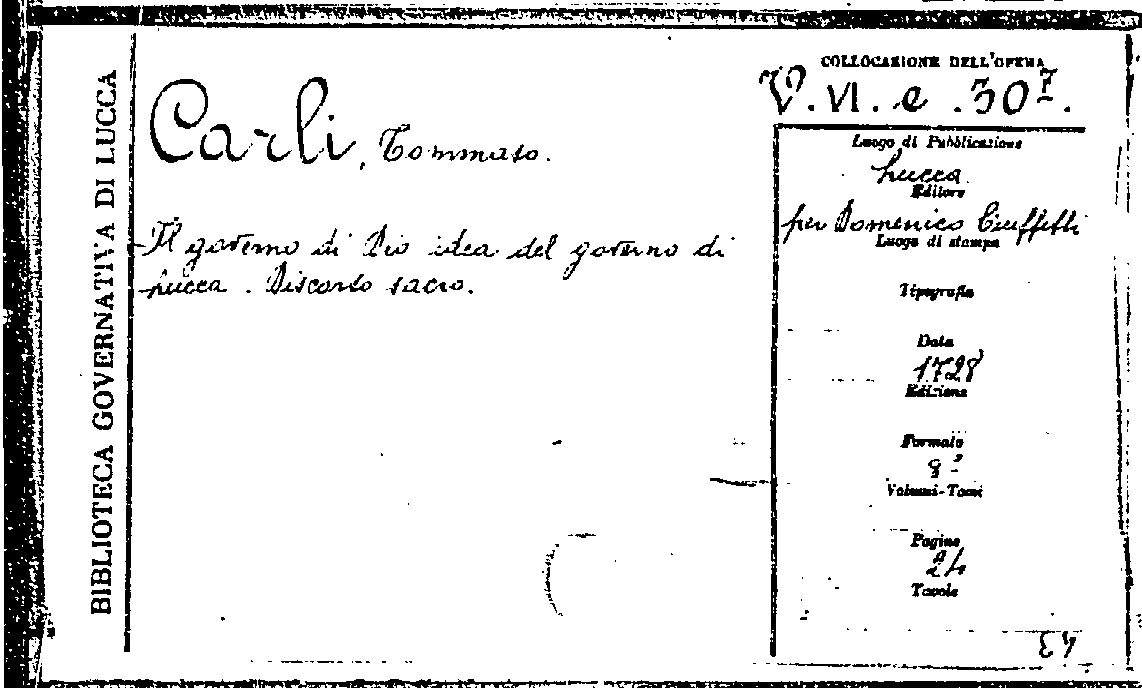 BIBLIOTECA GOVERNATIVA DI LUCCA
Carli, Tommaso.
Il governo di Dio idea del governo di
Lucca. Discorso sacro.
COLLOCAZIONE DELL'OPERA
V. VI. e. 30⁷.
Luogo di Pubblicazione
Lucca
Editore
per Domenico Ciuffetti
Luogo di stampa
Tipografia
Data
1728
Edizione
Formato
8º
Volumi-Tomi
Pagine
24
Tavole